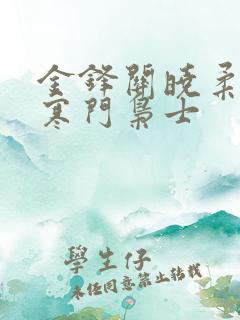 金鋒關曉柔
寒門梟士
學生仔
未經同意禁止轉載